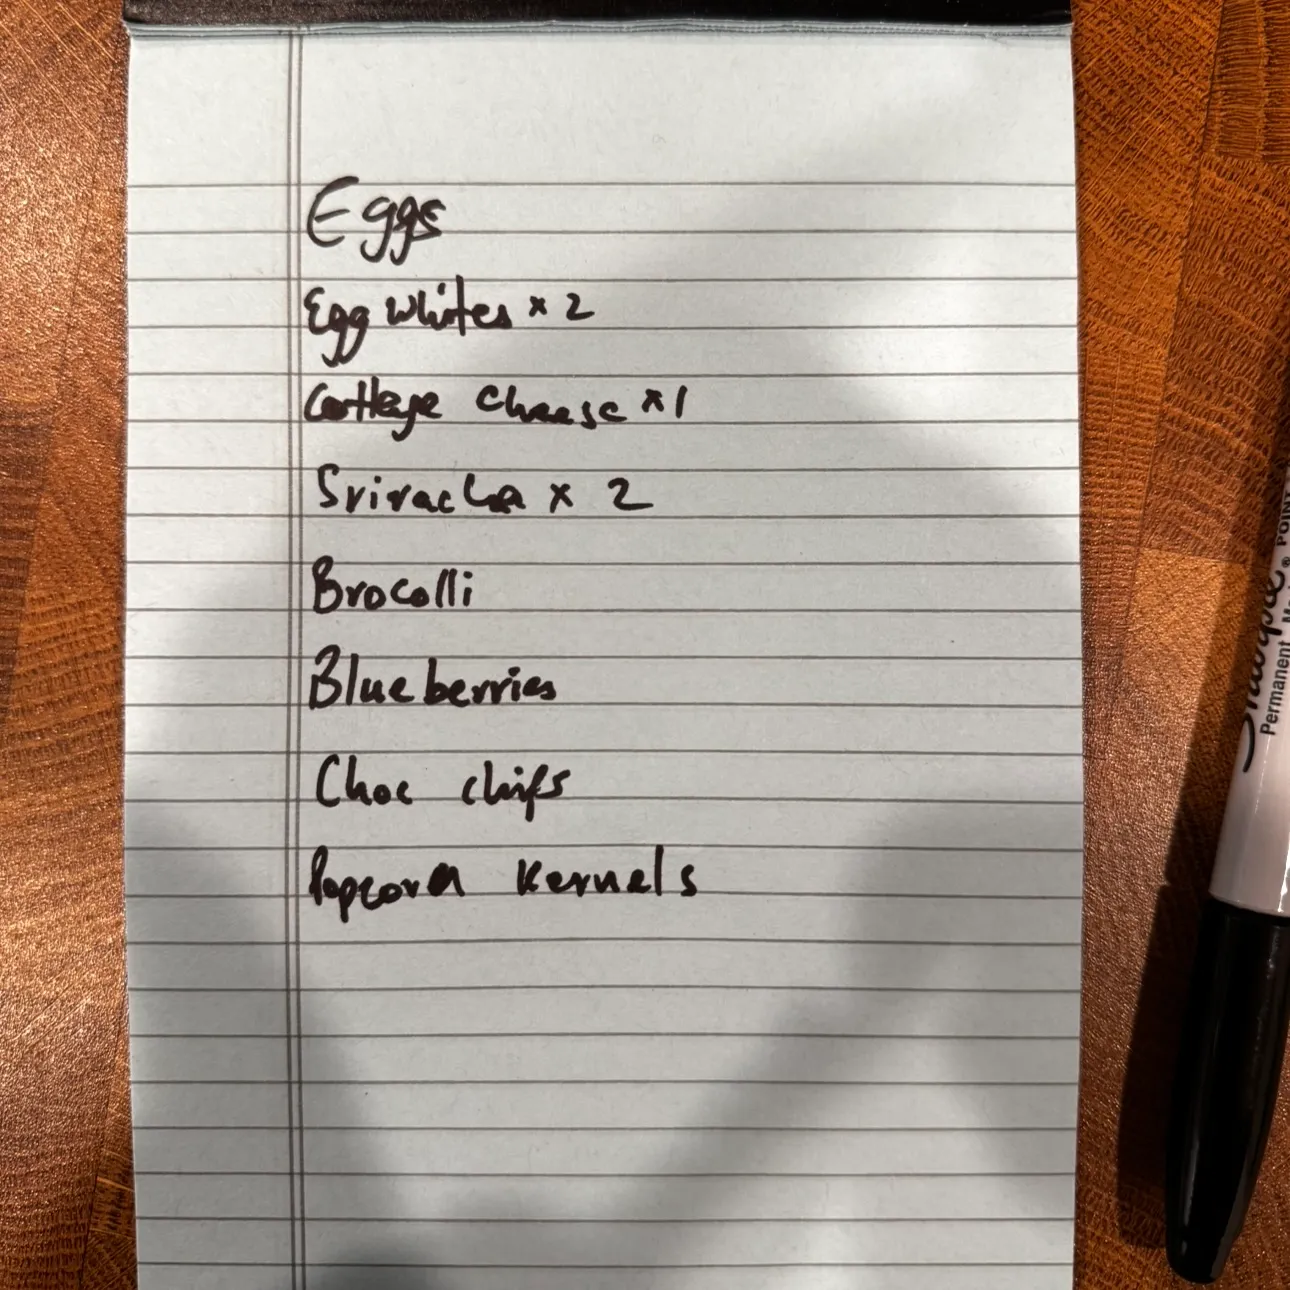 Eggs
Egg whites x 2
Cottage cheese x 1
Sriracha x 2
Brocolli
Blueberries
Choc chips
Popcorn Kernels
Sharpie®
Permanent
POINT